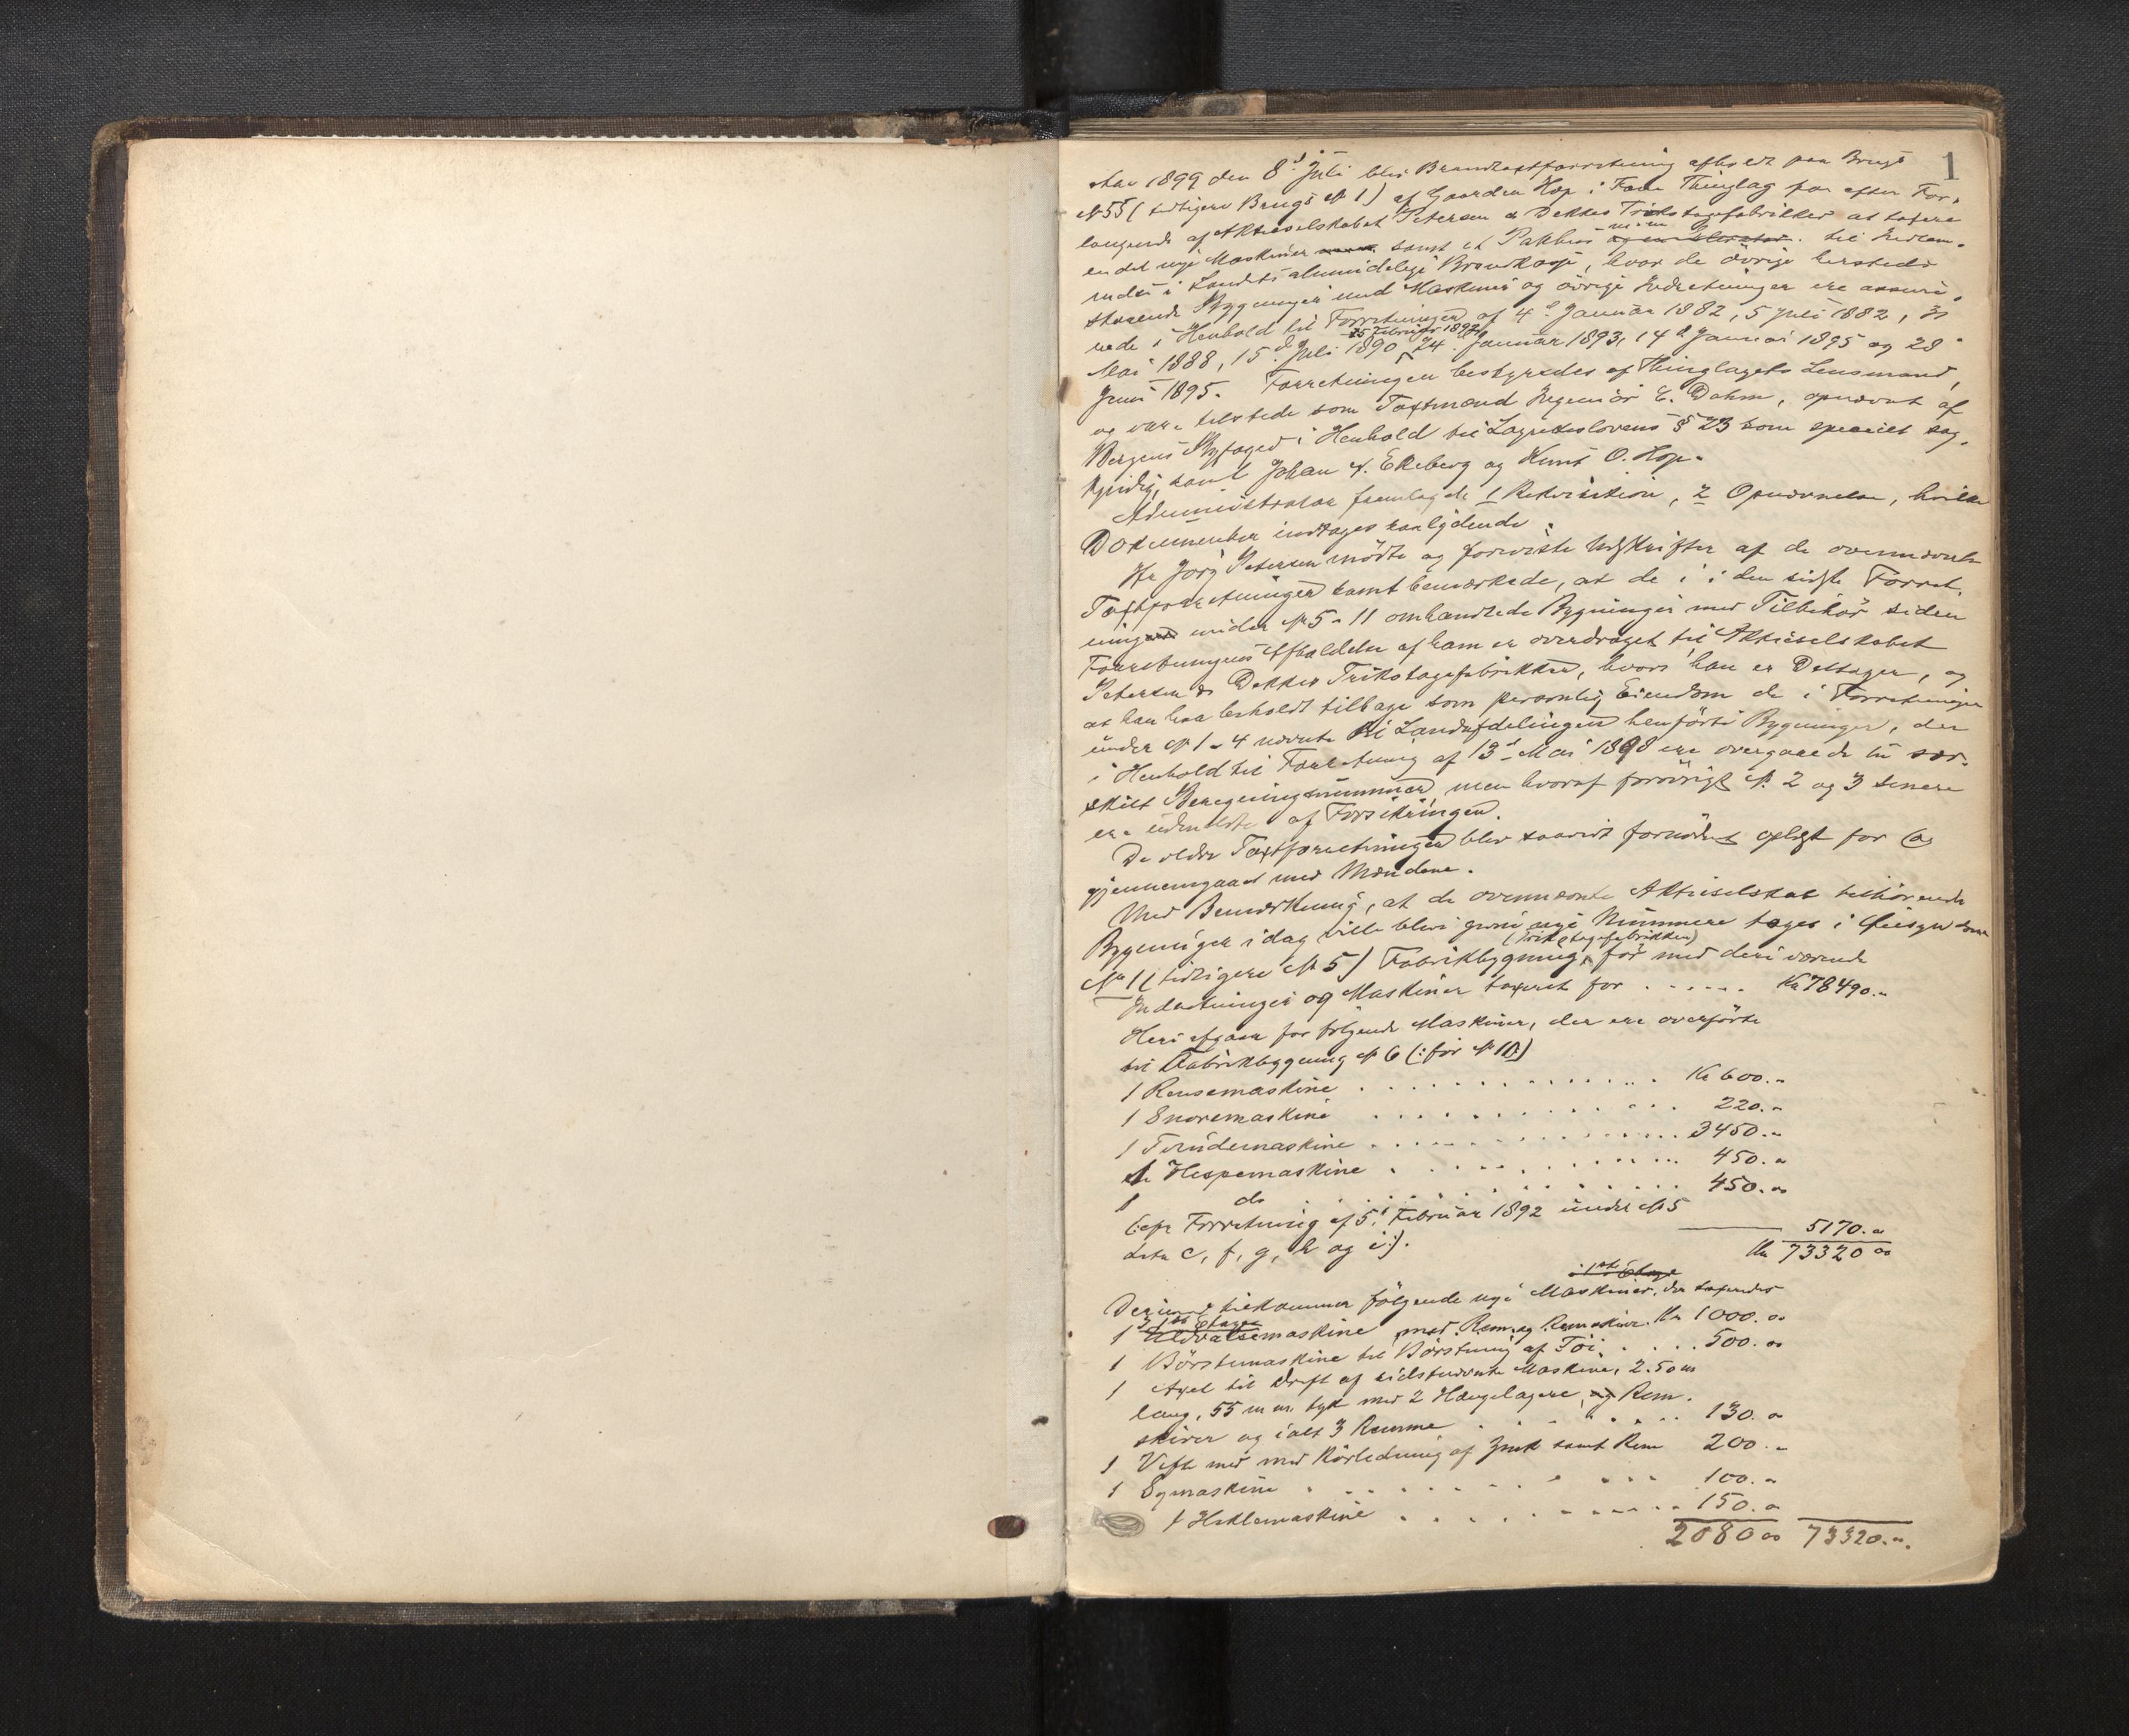 1
Aar 1899 den 8de Juli blev Brandtaxtforretning afholdt paa Brugs
№ 55 (tidligere Brugs № 1) af Gaarden Hop i Fane Thinglag for efter For-
langende af Aktieselskabet Petersen & Dekkes Trikotagefabrikker at taxere
endel nye Maskiner samt et Pakhus og en Elevator. til Indlem-
melse i Landets almindelige Brandkasse, hvor de øvrige hersteds
staaende Bygninger med Maskiner og øvrige Indretninger ere assure-
rede i Henhold til Forretninger af 4de Januar 1882, 5 Juli 1882, 31
25 Februar 1892
Mai 1888, 15de Juli 1890, 24. Januar 1893, 14de Januar 1895 og 28
Juni 1895. Forretningen bestyredes af Thinglagets Lensmand,
og vare tilstede som Taxtmænd Ingeniør E. Dahm, opnævnt af
Bergens Byfoged i Henhold til Lagrettelovens § 23 som specielt sag-
kyndig, samt Johan A. Ekeberg og Knut O. Hop.
Administrator fremlagde 1 Rekvisition, 2 Opnævnelse, hvilke
Dokumenter indtages saalydende:
Hr Jørg Petersen mødte og foreviste Udskrifter af de ovennævnte
Taxtforretninger samt bemærkede, at de i den sidste Forret-
ning under № 5-11 omhandlede Bygninger med Tilbehør siden
Forretningens Afholdelse af ham er overdraget til Aktieselskabet
Petersen & Dekkes Trikotagefabrikker, hvori han er Deltager, og
at han har beholdt tilbage som personlig Eiendom de i Forretningen
under № 1-4 nævnte til Landafdelingen henførte Bygninger, der
i Henhold til Forretning af 13de Mai 1898 ere overgaaede til sær-
skilt Beregningsnummer, men hvoraf forøvrigt № 2 og 3 senere
ere udmeldte af Forsikringen.
De ældre Taxtforretninger blev saavidt fornødent oplæst for og
gjennemgaaet med Mændene.
Med Bemærkning, at de ovennævnte Aktieselskab tilhørende
Bygninger idag ville blive givne nye Nummere toges i Øiesyn
(Trikotagefabrikken)
№ 1 (tidligere № 5) Fabrikbygning, før med deri værende
Indretninger og Maskiner taxeret for . . . . . . Kr 78490.-
Heri afgaar for følgende Maskiner, der ere overførte
til Fabrikbygning № 6 (: før № 10:)
1 Rensemaskine . . . . . . . . . . Kr 600.-
1 Snoremaskine . . . . . . . . . . 220.-
1 Tvindemaskine . . . . . . . . . . 3450.-
1 Hespemaskine . . . . . . . . . . 450.-
1 do . . . . . . . . . . 450.-
(:efr Forretning af 5. Februar 1892 under № 5
Litra c, f, g, h og i:). 5170.-
Kr 73320 00
i 1ste Etage
Derimod tilkommer følgende nye Maskiner, der taxeredes
I 1ste Etage
1 Uldvalsemaskine med Rem og Remskive. Kr 1000.00
1 Børstemaskine til Børstning af Tøi. . . . . 500.00
1 Axel til Drift af sidstnævnte Maskine, 2.50 m
lang, 55 m.m. tyk med 2 Hængelagere, og Rem-
skiver og ialt 3 Remme . . . . . . 130.00
1 Vifte med med Rørledning af Zink samt Rem 200.-
1 Symaskine . . . . . . . . 100.-
1 Heklemaskine . . . . . . . . 150.-
2080 00 73320.-.